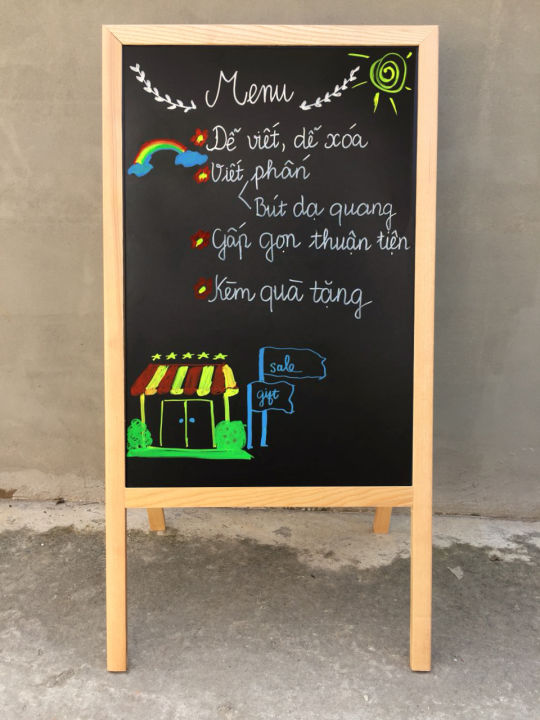 Menu
Dễ viết, dễ xóa
Viết phấn
Bút dạ quang
Gấp gọn thuận tiện
Kèm quà tặng
sale
gift